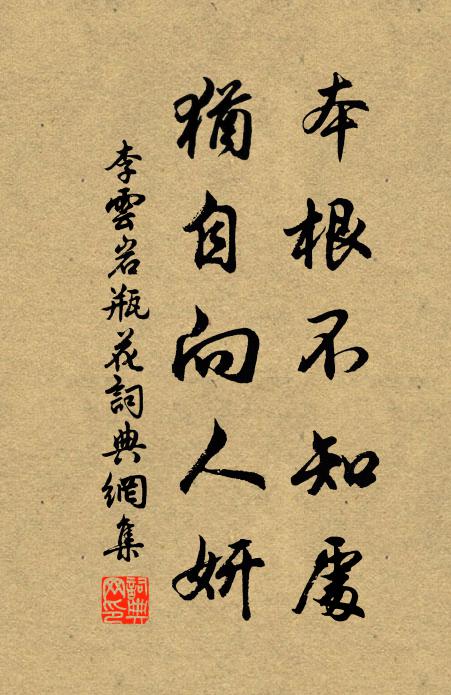 本根不知處
猶自向人妍
李雲岩瓶花詞典網集
詞典網印